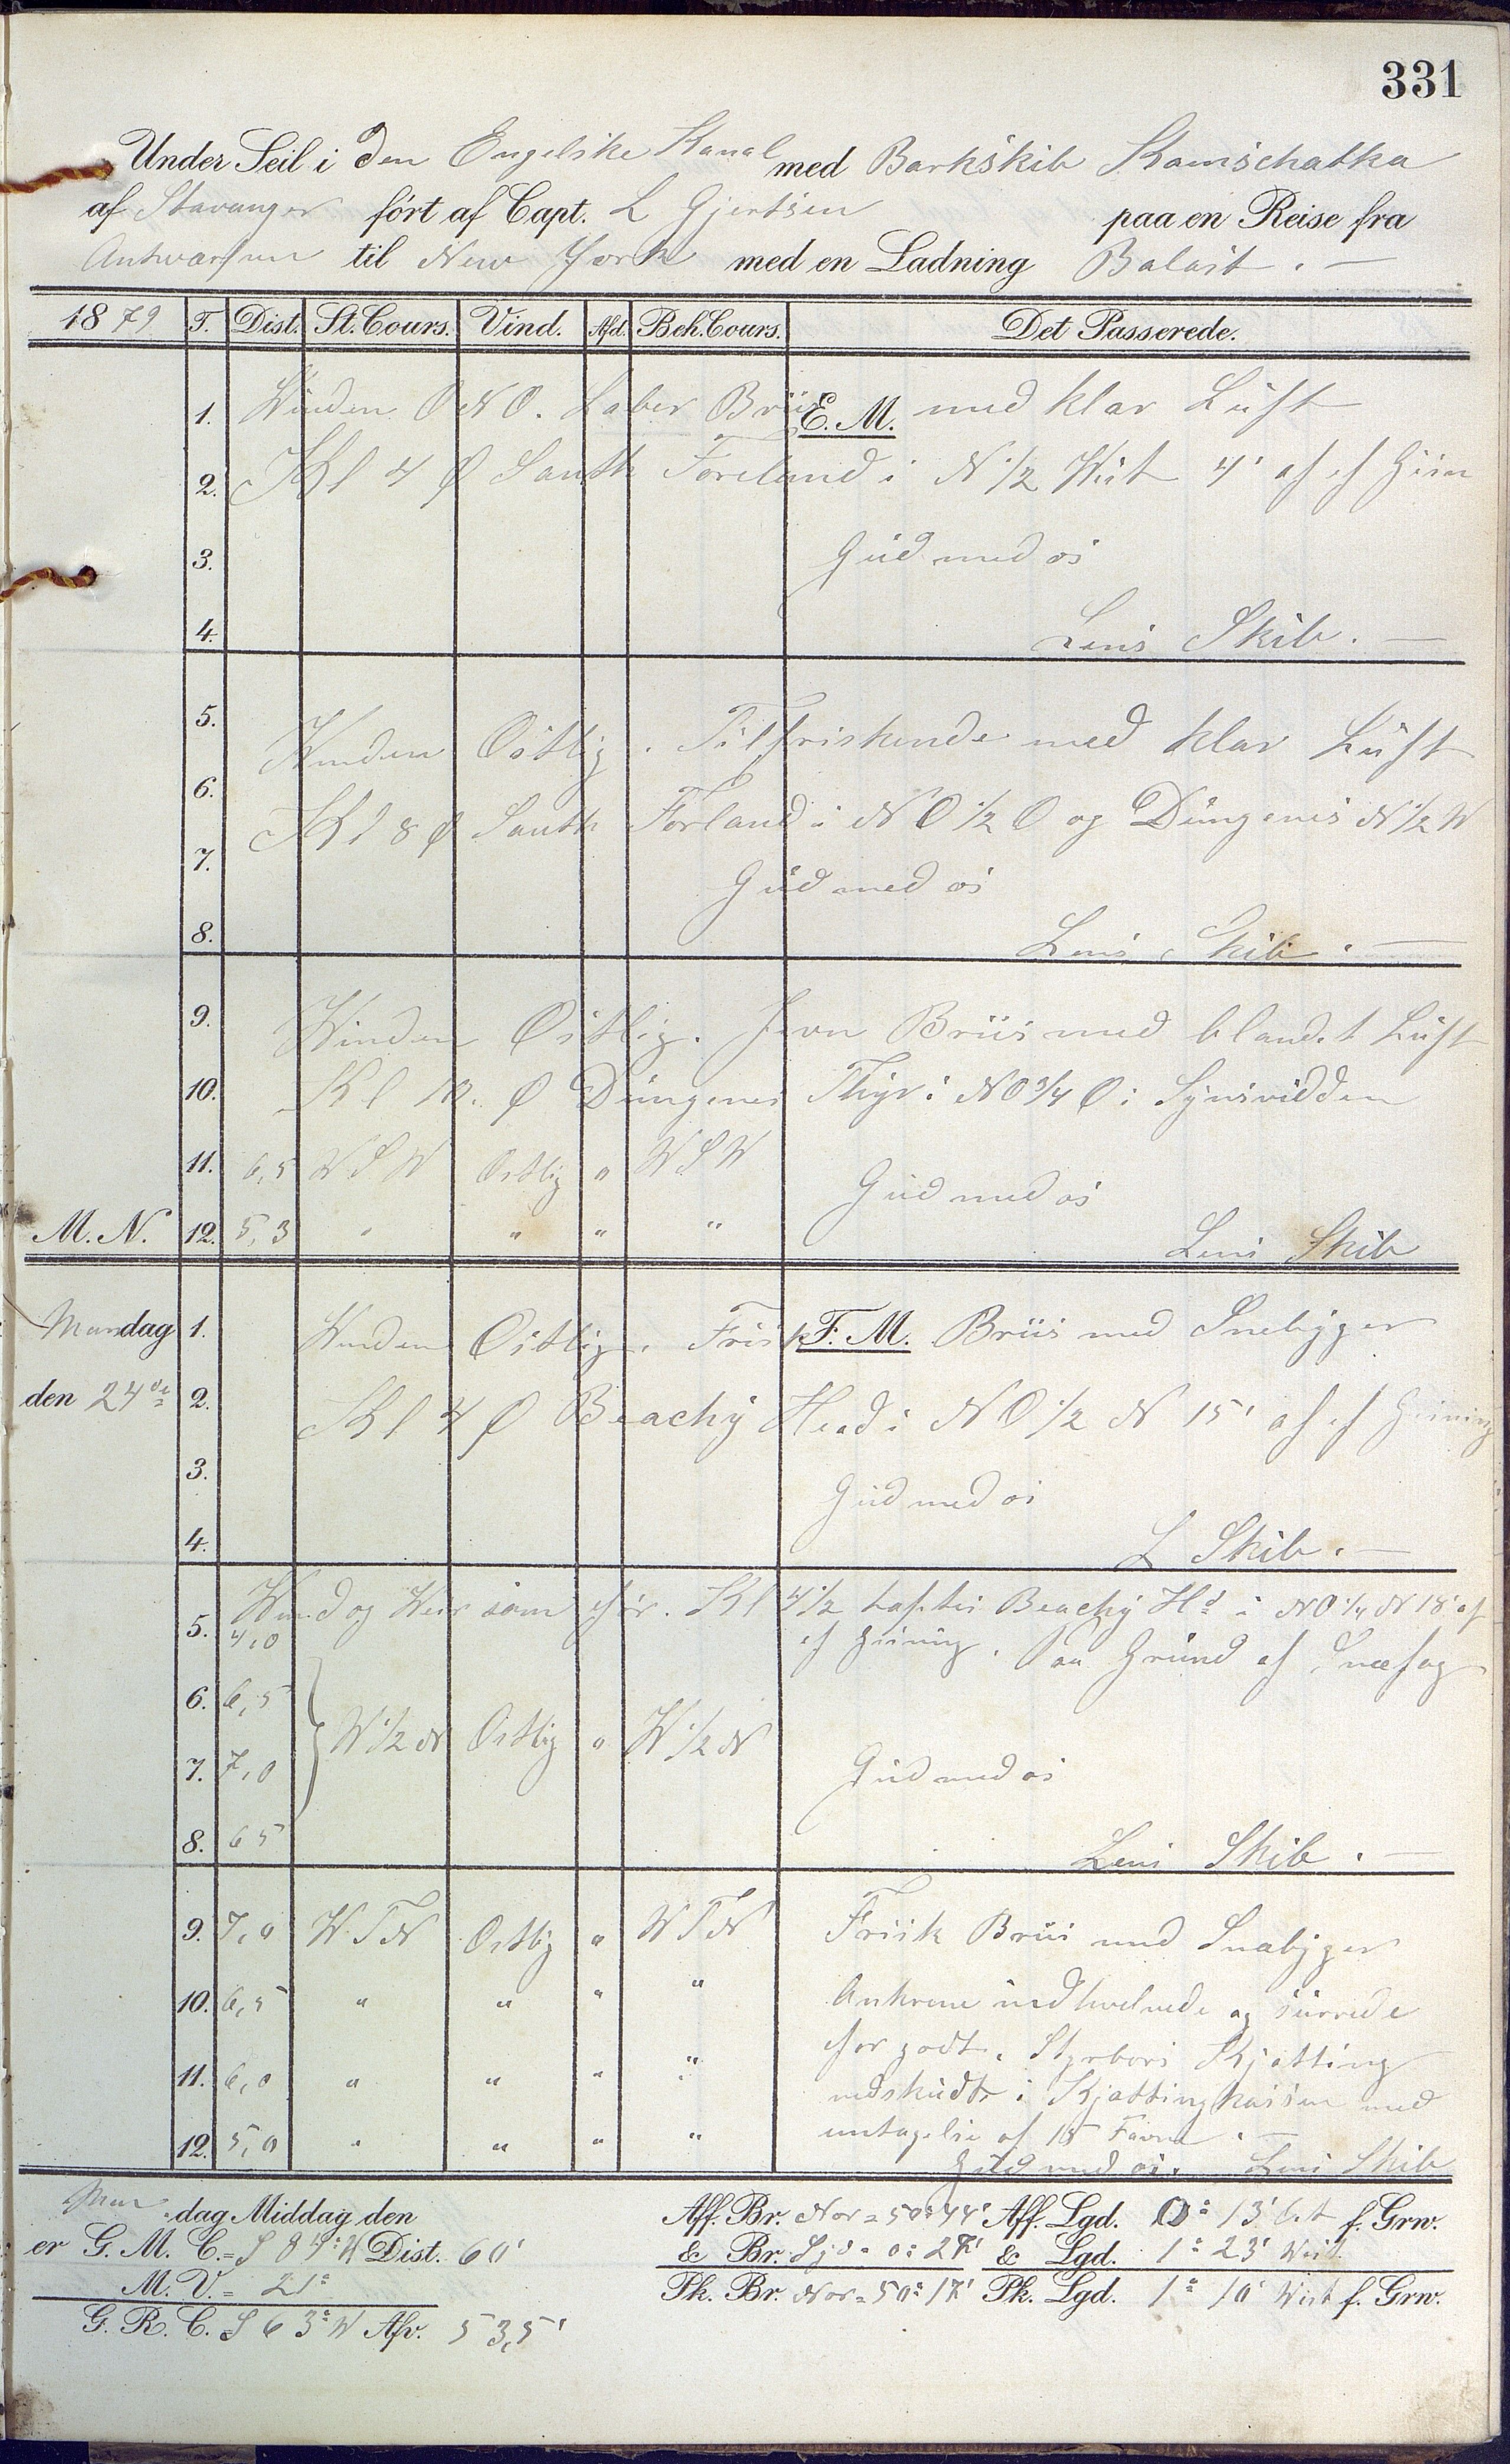 331
Under Seil i den Engelske Kanal med Barkskib Kamschatka
af Stavanger ført af Capt. L Gjertsen paa en Reise fra
Antwarpen til New York med en Ladning Balast. —
1879 T. Dist. St. Cours. Vind. Afd. Beh. Cours. Det Passerede.
1. Winden ONO. Laber Briis E. M. med klar Luft
2. Kl 4 Ø South Foreland i N 1/2 West 4' af
3. Gud med os
4. Lens Skib. —
5. Winden Ostlig. Tilfriskende med klar Luft
6. Kl 8 Ø South Forland i NO 1/2 O og Dungenes N 1/2 W
7. Gud med os
8. Lens Skib. —
9. Winden Ostlig. Jevn Briis med blandet Luft
10. Kl 10. Ø Dungenes Fhyr i NO 3/4 O i Synsvidden
11. 6,5 WSW Ostlig " WSW Gud med os
M. N. 12. 5,3 " " " " Lens Skib
Mandag 1. Winden Ostlig. Frisk F. M. Briis med Snebyger
den 24de 2. Kl 4 Ø Beachy Head i NO 1/2 N 15' af
3. Gud med os
4. L Skib. —
5. Wind og Veir som før. Kl 4 1/2 Beachy Hd i NO 1/4 N 18' af
4,0 Paa Grund af
6. 6,5
7. 7,0 W 1/2 N Ostlig " W 1/2 N Gud med os
8. 6 5 Lens Skib. —
9. 7,0 W T N Ostlig " W T N Frisk Briis med Snebyger
10. 6,5 " " " " Ankrene og surrede
for godt. Styrbors Kjætting
11. 6,0 " " " " i Kjættingkassen med
12. 5,0 " " " " untagelse af 15 Favne. —
Gud med os. Lens Skib
Man dag Middag den Aff. Br. Nor = 50° 44' Aff. Lgd. 0° 13' Ost f. Grw.
er G. M. C. = S 84° W Dist. 60' & Br. Syd = 0° 27' & Lgd. 1° 23' West
M. V. = 21° Pk. Br. Nor = 50° 17' Pk. Lgd. 1° 10' West f. Grw.
G. R. C. S 63° W Afv. 53,5'